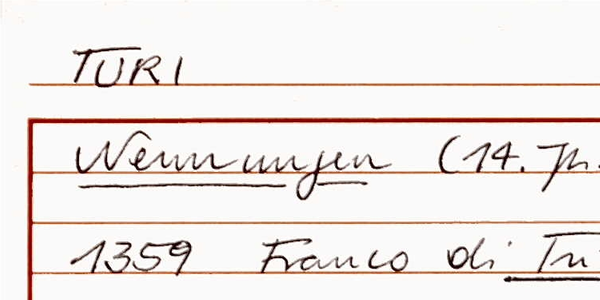 TURI
Nennungen (14. Jh.
1359 Franco di Tu